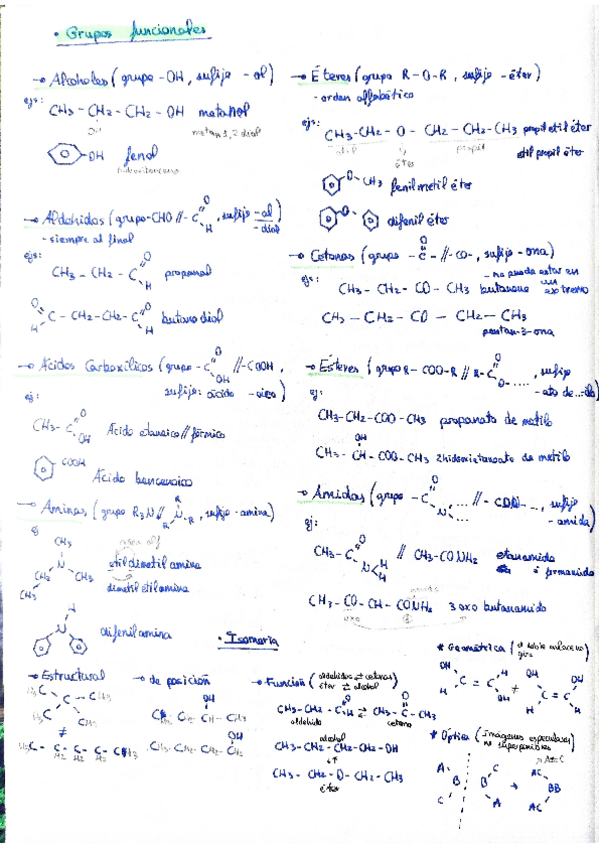 • Grupos funcionales
→ Alcoholes (grupo -OH, sufijo -ol)
ejs:
CH3-CH2-CH2-OH
OH
-OH fenol
→ Aldehidos (grupo-CHO // -C O H, sufijo -al)
-dial
- siempre al final
ejs:
CH3-CH2-C O H propanal
O H C-CH2-CH2-C O H butanodial
→ Ácidos Carboxílicos (grupo -C O OH // -COOH,
sufijo: ácido -oico)
ej:
CH3-C O OH Ácido etanoico // fórmico
COOH
Ácido bencenoico
→ Aminas (grupo R3N // R N R R, sufijo -amina)
ej
CH3
N
CH2 CH3
CH3
etil dimetil amina
dimetil etil amina
H
N
difenil amina
→ Éteres (grupo R-O-R, sufijo -éter)
- orden alfabético
ejs:
CH3-CH2-O-CH2-CH2-CH3 propil etil éter
etil propil éter
éter
O-CH3 fenil metil éter
O difenil éter
→ Cetonas (grupo -C O - // -CO-, sufijo -ona)
- no puede estar en
un extremo
ejs:
CH3-CH2-CO-CH3 butanona
CH3-CH2-CO-CH2-CH3
pentan-3-ona
→ Ésteres (grupo R-COO-R // R-C O O-....., sufijo
-ato de...-ilo)
ej:
CH3-CH2-COO-CH3 propanato de metilo
OH
CH3-CH-COO-CH3 de metilo
→ Amidas (grupo -C O N ... // -CON- ..., sufijo
-amida)
ej:
CH3-C O N H H // CH3-CONH2 etanamida
CH3-CO-CH-CONH2 3 oxo butanamida
• Isomería
→ Estructural
≠
→ de posición
OH
OH
→ Función (aldehidos ⇌ cetonas)
(éter ⇌ alcohol)
CH3-CH2-C O H ⇌ CH3-C O-CH3
aldehido cetona
alcohol
CH3-CH2-CH2-CH2-OH
CH3-CH2-O-CH2-CH3
éter
* Geométrica (el doble enlace no
gira
OH H OH H
C=C ≠ C=C
* Óptica (Imágenes especulares
no superponibles
A B C
C B A
→